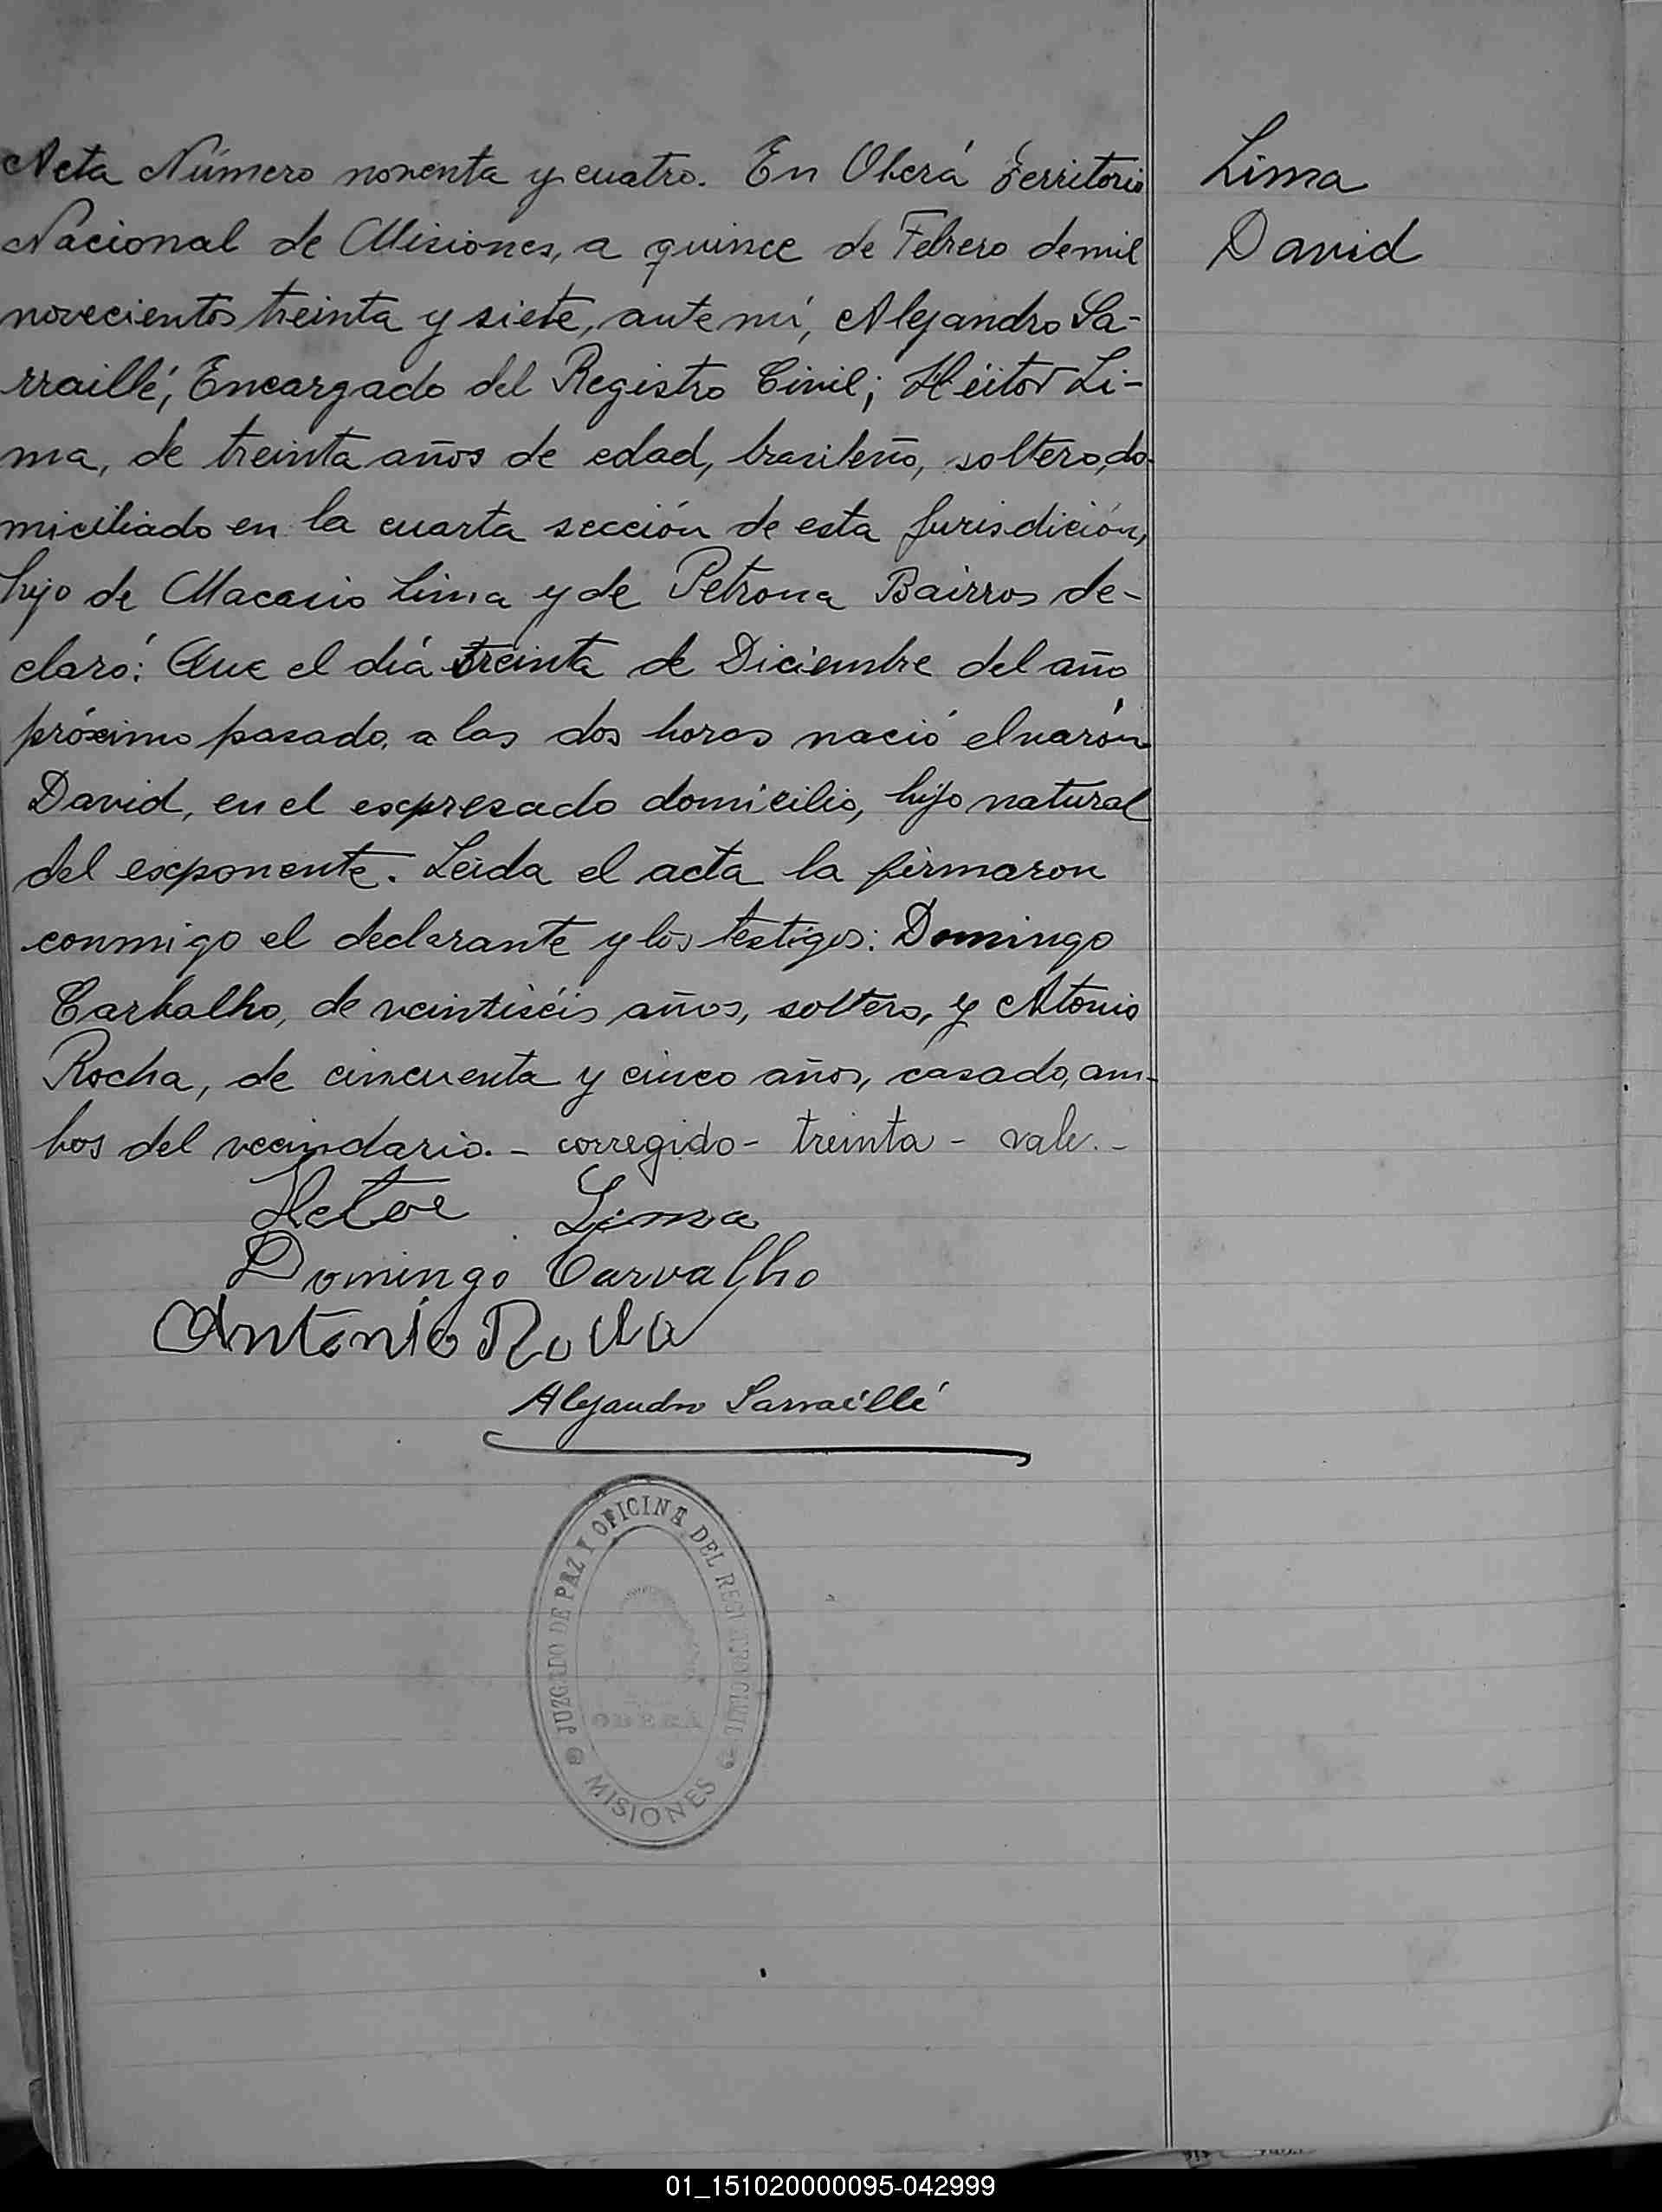 Acta Número noventa y cuatro. En Oberá Territorio
Nacional de Misiones, a quince de Febrero de mil
novecientos treinta y siete, ante mí, Alejandro Sa-
rraillé, Encargado del Registro Civil; Héitor Li-
ma, de treinta años de edad, brasileño, soltero, do-
miciliado en la cuarta sección de esta Jurisdición,
hijo de Macario Lima y de Petrona Bairros de-
claró: Que el día treinta de Diciembre del año
próximo pasado, a las dos horas nació el varón
David, en el expresado domicilio, hijo natural
del exponente. Leída el acta la firmaron
conmigo el declarante y los testigos: Domingo
Carbalho, de veintiséis años, soltero, y Atonio
Rocha, de cincuenta y cinco años, casado, am-
bos del vecindario. - corregido - treinta - vale. -
Hetor Lima
Domingo Carvalho
Antonio Rocha
Alejandro Sarraillé
Lima
David
JUZGADO DE PAZ Y OFICINA DEL REGISTRO CIVIL
MISIONES
01_151020000095-042999